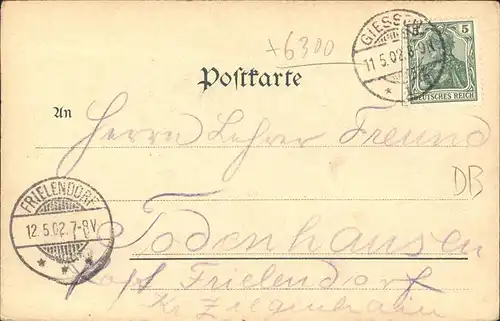 +6300
GIESSEN
11.5.02.8-9N.
5
DEUTSCHES REICH
Postkarte
An
Herrn Lehrer Freund
DB
FRIELENDORF
12.5.02.7-8V.
Todenhausen
Post Frielendorf
Kr Ziegenhain